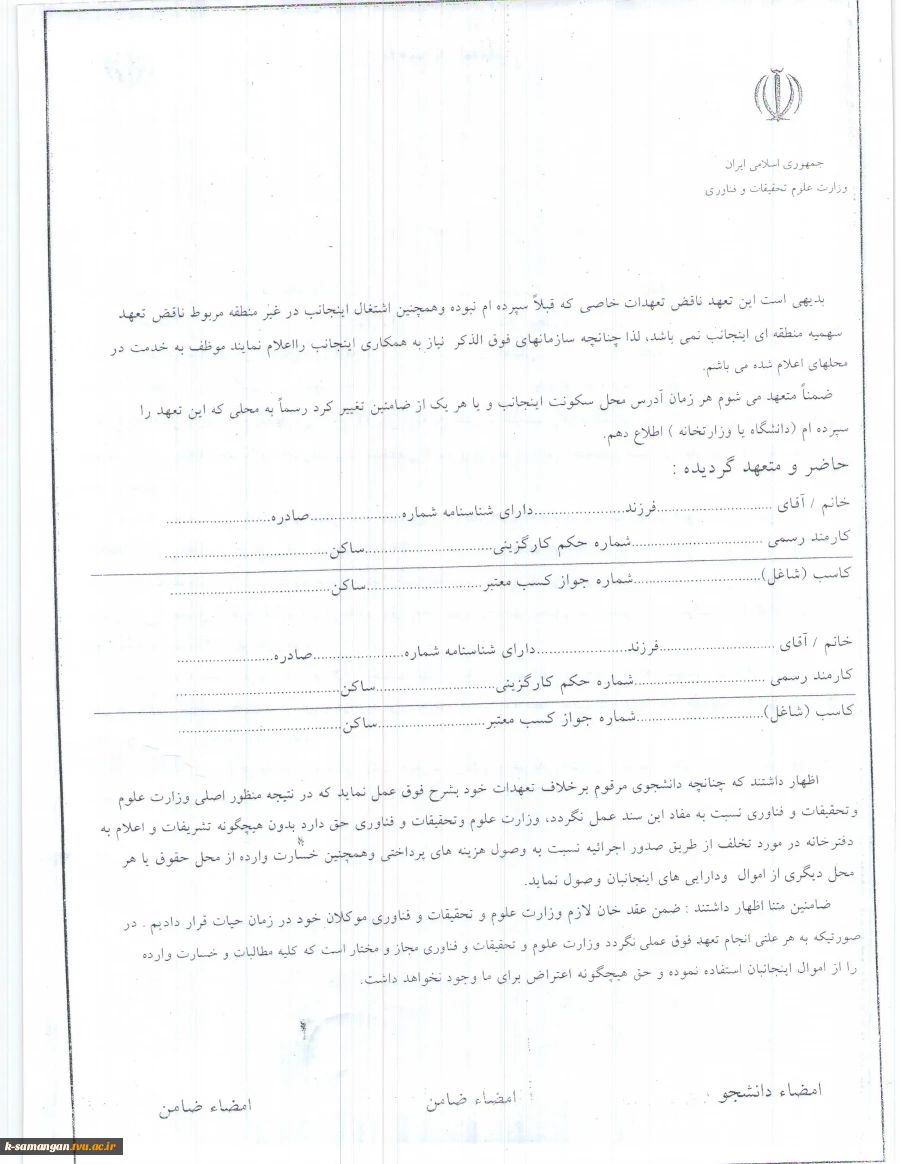 جمهوری اسلامی ایران
وزارت علوم تحقیقات و فناوری
بدیهی است این تعهد ناقض تعهدات خاصی که قبلاً سپرده ام نبوده وهمچنین اشتغال اینجانب در غیر منطقه مربوط ناقض تعهد
سهمیه منطقه ای اینجانب نمی باشد، لذا چنانچه سازمانهای فوق الذکر نیاز به همکاری اینجانب رااعلام نمایند موظف به خدمت در
محلهای اعلام شده می باشم.
ضمناً متعهد می شوم هر زمان آدرس محل سکونت اینجانب و یا هر یک از ضامنین تغییر کرد رسماً به محلی که این تعهد را
سپرده ام (دانشگاه یا وزارتخانه ) اطلاع دهم.
حاضر و متعهد گردیده :
خانم / آقای ..............................فرزند........................دارای شناسنامه شماره........................صادره...........................
کارمند رسمی ..................................شماره حکم کارگزینی.................................ساکن..........................................
کاسب (شاغل).................................شماره جواز کسب معتبر..............................ساکن..........................................
خانم / آقای ..............................فرزند........................دارای شناسنامه شماره........................صادره.........................
کارمند رسمی ..................................شماره حکم کارگزینی...............................ساکن..........................................
کاسب (شاغل).................................شماره جواز کسب معتبر............................ساکن..........................................
اظهار داشتند که چنانچه دانشجوی مرقوم برخلاف تعهدات خود بشرح فوق عمل نماید که در نتیجه منظور اصلی وزارت علوم
وتحقیقات و فناوری نسبت به مفاد این سند عمل نگردد، وزارت علوم وتحقیقات و فناوری حق دارد بدون هیچگونه تشریفات و اعلام به
دفترخانه در مورد تخلف از طریق صدور اجرائیه نسبت به وصول هزینه های پرداختی وهمچنین خسارت وارده از محل حقوق یا هر
محل دیگری از اموال ودارایی های اینجانبان وصول نماید.
ضامنین متنا اظهار داشتند : ضمن عقد خان لازم وزارت علوم و تحقیقات و فناوری موکلان خود در زمان حیات قرار دادیم . در
صورتیکه به هر علتی انجام تعهد فوق عملی نگردد وزارت علوم و تحقیقات و فناوری مجاز و مختار است که کلیه مطالبات و خسارت وارده
را از اموال اینجانبان استفاده نموده و حق هیچگونه اعتراض برای ما وجود نخواهد داشت.
امضاء دانشجو امضاء ضامن امضاء ضامن
k-samangan.tvu.ac.ir